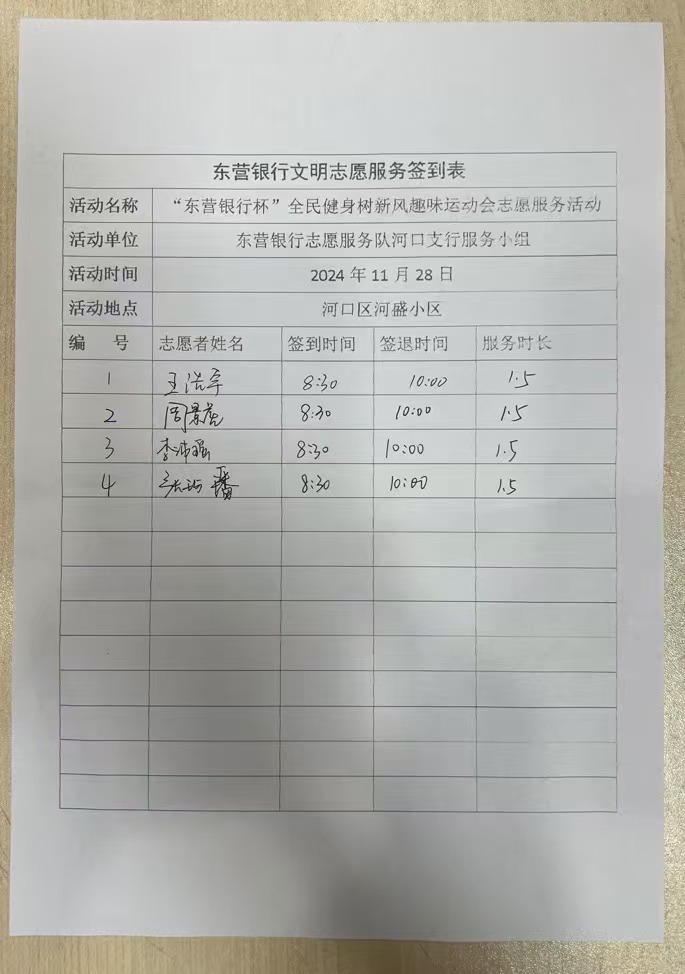 东营银行文明志愿服务签到表
活动名称 “东营银行杯”全民健身树新风趣味运动会志愿服务活动
活动单位 东营银行志愿服务队河口支行服务小组
活动时间 2024年11月28日
活动地点 河口区河盛小区
编 号 志愿者姓名 签到时间 签退时间 服务时长
1 王浩军 8:30 10:00 1.5
2 周景 8:30 10:00 1.5
3 李沛 8:30 10:00 1.5
4 8:30 10:00 1.5